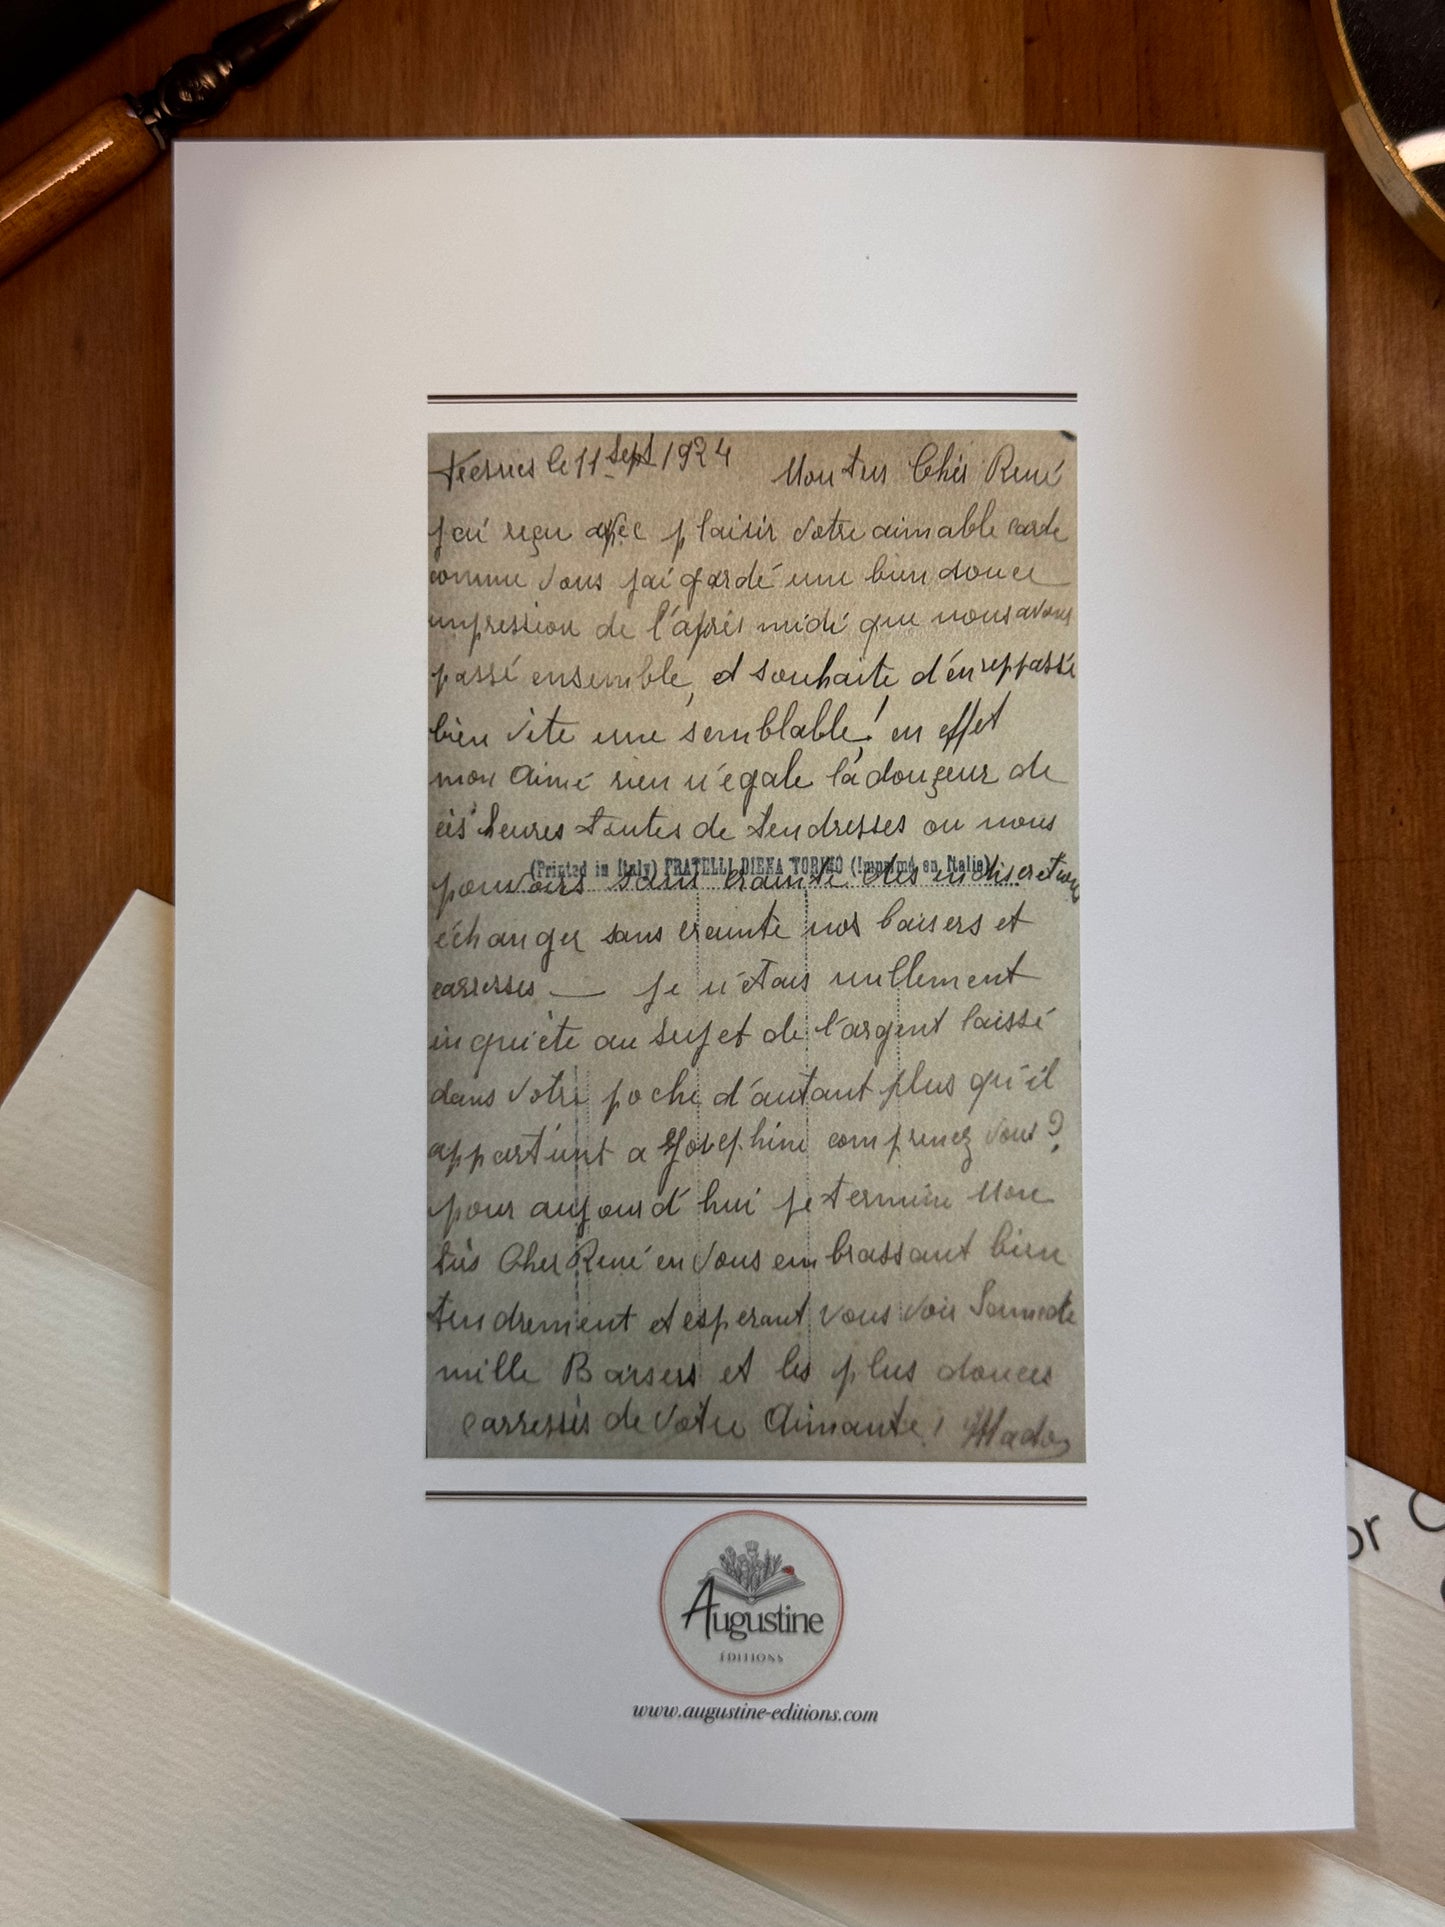 le 11 Sept 1924 Mon tres Cher René
j'ai reçu avec plaisir votre aimable carte
comme vous j'ai gardé une bien douce
impression de l'après midi que nous avons
passé ensemble, et souhaite d'en reppassé
bien vite une semblable! en effet
mon Aimé rien n'égale la douçeur de
ces heures toutes de tendresses ou nous
(Printed in Italy) FRATELLI DIENA TORINO (Imprimé en Italie)
pouvons sans crainte des indiscretions
échanger sans crainte nos baisers et
carresses — je n'étais nullement
inquiète au sujet de l'argent laissé
dans votre poche d'autant plus qu'il
appartient a Josephine comprenez vous?
pour aujourd'hui je termine Mon
très Cher René en vous embrassant bien
tendrement et esperant vous voir Samedi
mille Baisers et les plus douces
carresses de votre Aimante!
Augustine
ÉDITIONS
www.augustine-editions.com
or